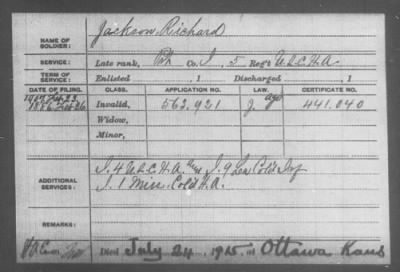 NAME OF SOLDIER: Jackson, Richard
SERVICE: Late rank, Pvt Co. I, 5 Reg't U.S.C.H.A.
TERM OF SERVICE: Enlisted , 1 Discharged , 1
DATE OF FILING. CLASS. APPLICATION NO. LAW. CERTIFICATE NO.
1886 Feb 26 Invalid, 562,921 441,040
Widow,
Minor,
ADDITIONAL SERVICES: I. 4 U.S.C.H.A. I. 9 La Col'd Inf
I. 1 Miss. Col'd H.A.
REMARKS:
Died July 24, 1915, at Ottawa Kans